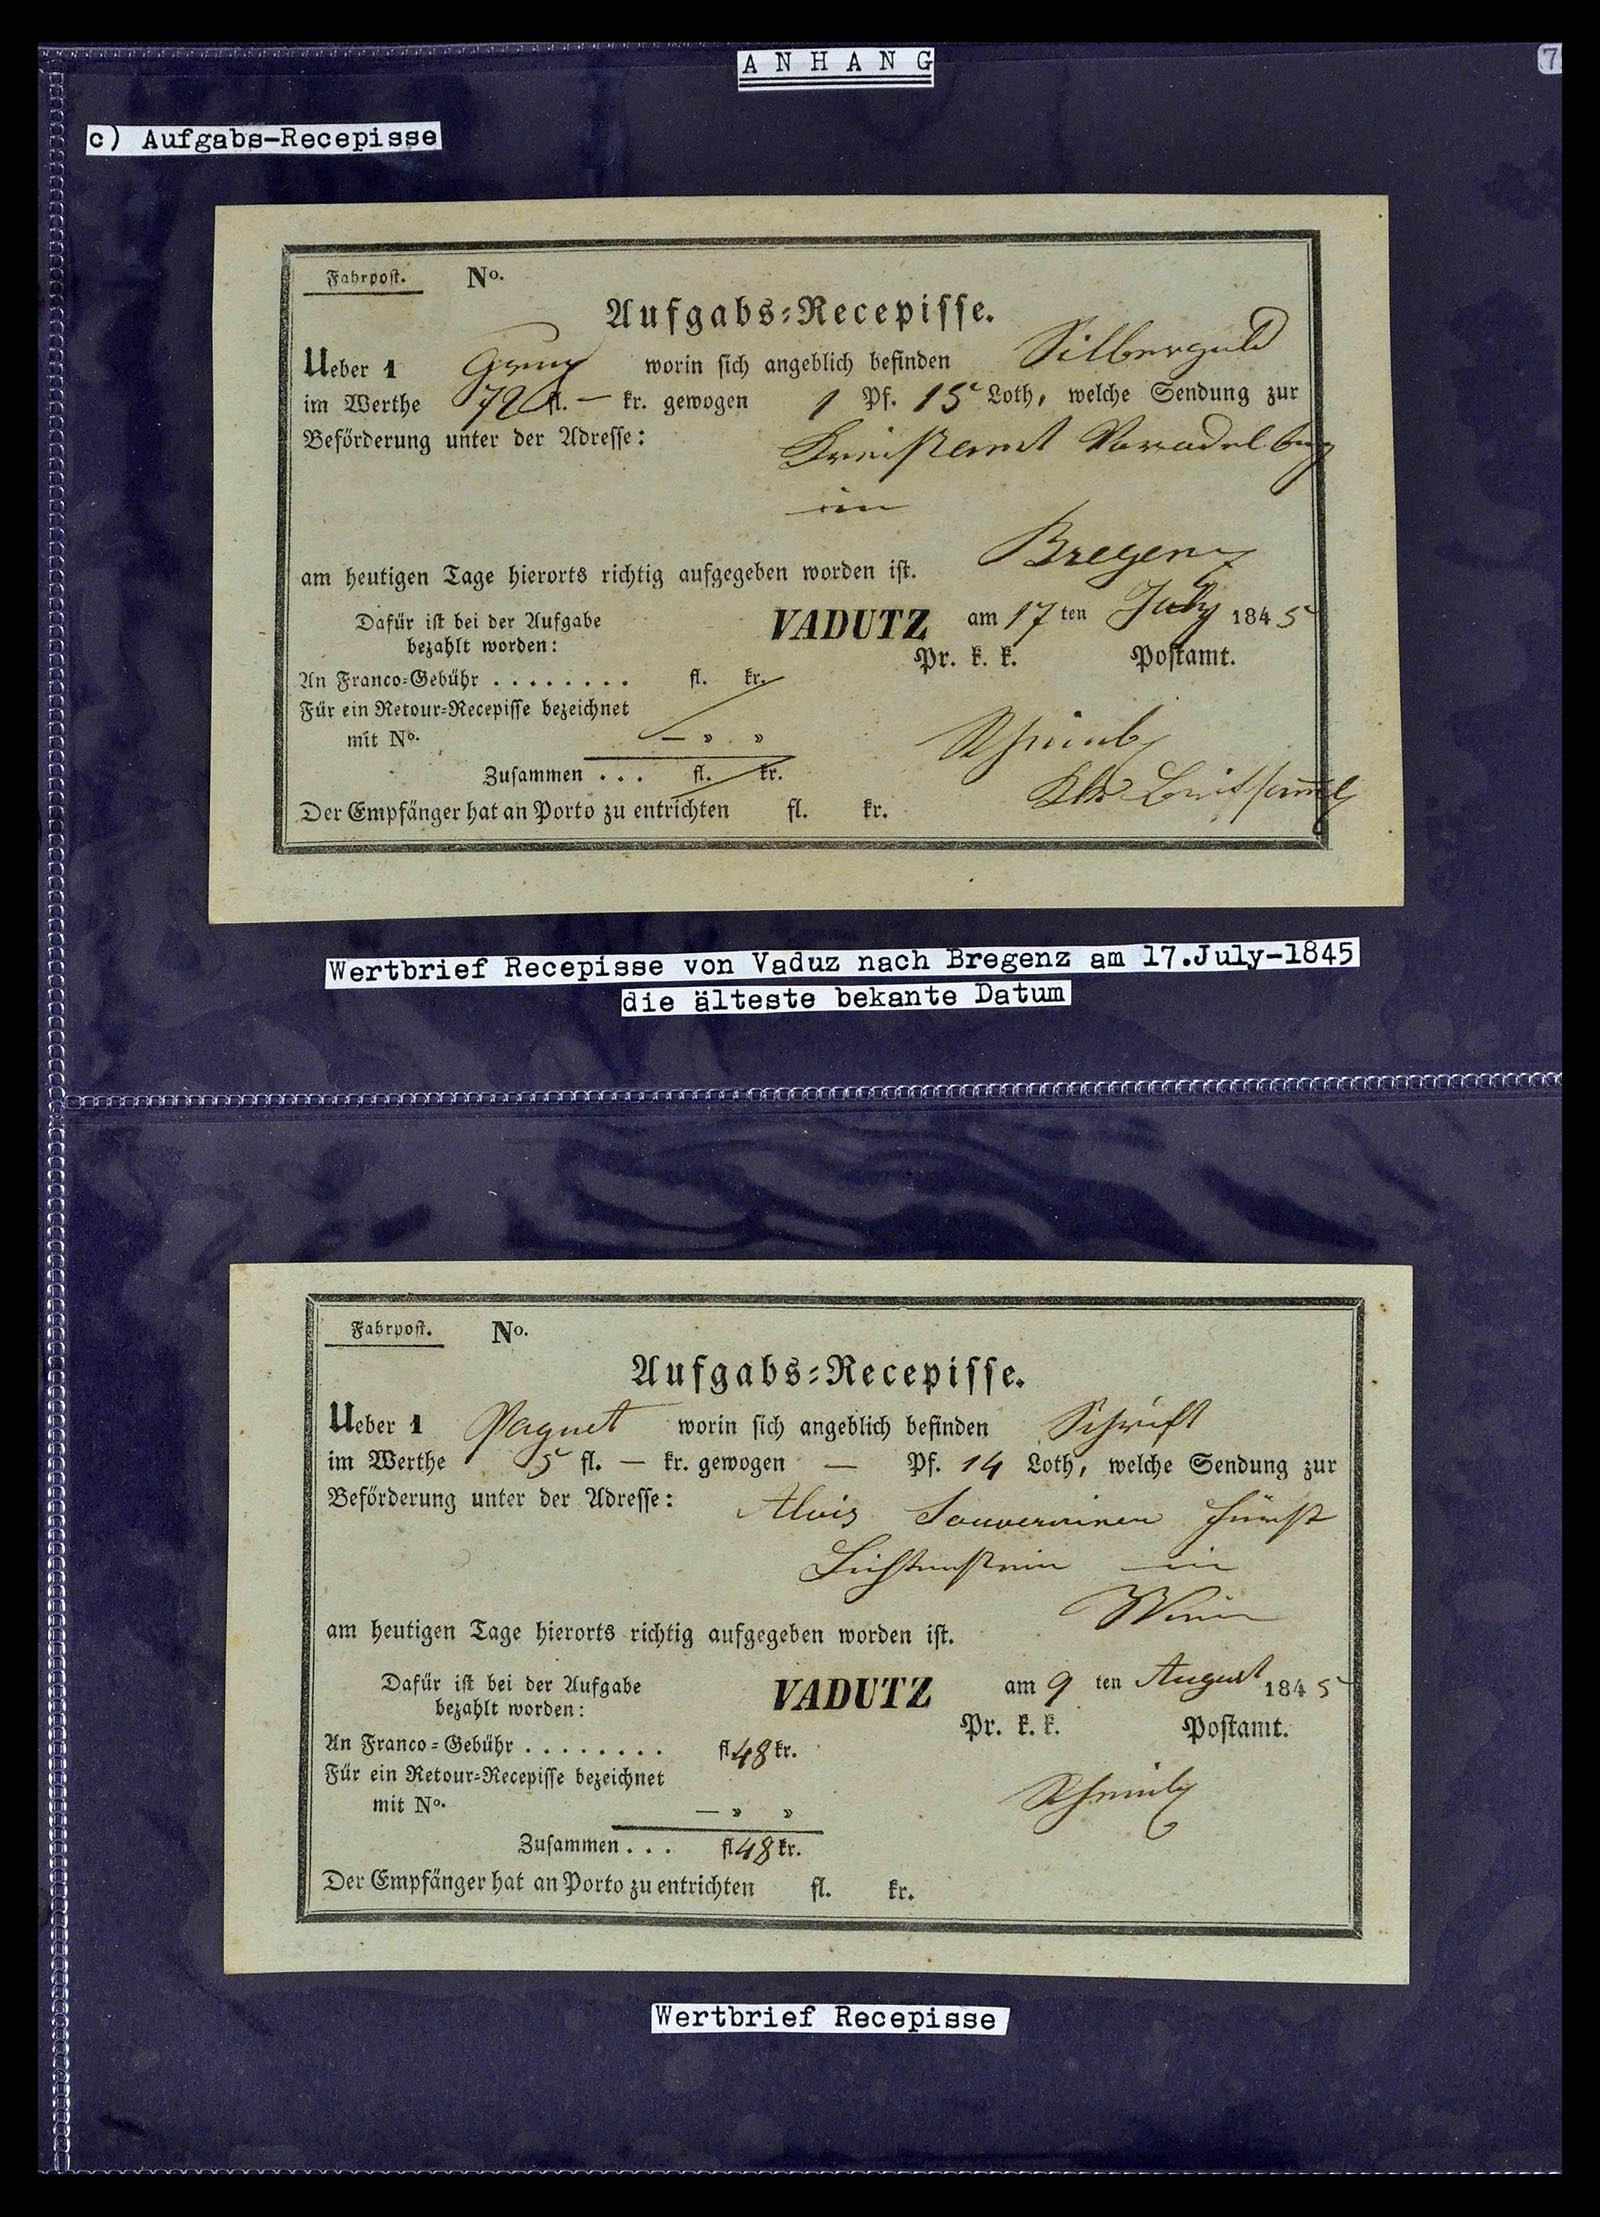 ANHANG
7
c) Aufgabs-Recepisse
Fahrpost. No.
Aufgabs-Recepisse.
Ueber 1 worin sich angeblich befinden Silbergeld
im Werthe 72 fl. — kr. gewogen 1 Pf. 15 Loth, welche Sendung zur
Beförderung unter der Adresse: Kreisamt Voradelberg
in
Bregenz
am heutigen Tage hierorts richtig aufgegeben worden ist.
Dafür ist bei der Aufgabe
bezahlt worden:
VADUTZ am 17 ten July 1845
Pr. k. k. Postamt.
An Franco-Gebühr . . . . . . . . fl. kr.
Für ein Retour-Recepisse bezeichnet
mit No. — » »
Zusammen . . . fl. kr.
Der Empfänger hat an Porto zu entrichten fl. kr.
Wertbrief Recepisse von Vaduz nach Bregenz am 17.July-1845
die älteste bekante Datum
Fahrpost. No.
Aufgabs-Recepisse.
Ueber 1 Paquet worin sich angeblich befinden Schrift
im Werthe 5 fl. — kr. gewogen — Pf. 14 Loth, welche Sendung zur
Beförderung unter der Adresse: Alois Souverainen Fürst
Lichtenstein in
Wien
am heutigen Tage hierorts richtig aufgegeben worden ist.
Dafür ist bei der Aufgabe
bezahlt worden:
VADUTZ am 9 ten August 1845
Pr. k. k. Postamt.
An Franco-Gebühr . . . . . . . . fl. 48 kr.
Für ein Retour-Recepisse bezeichnet
mit No. — » »
Zusammen . . . fl. 48 kr.
Der Empfänger hat an Porto zu entrichten fl. kr.
Wertbrief Recepisse